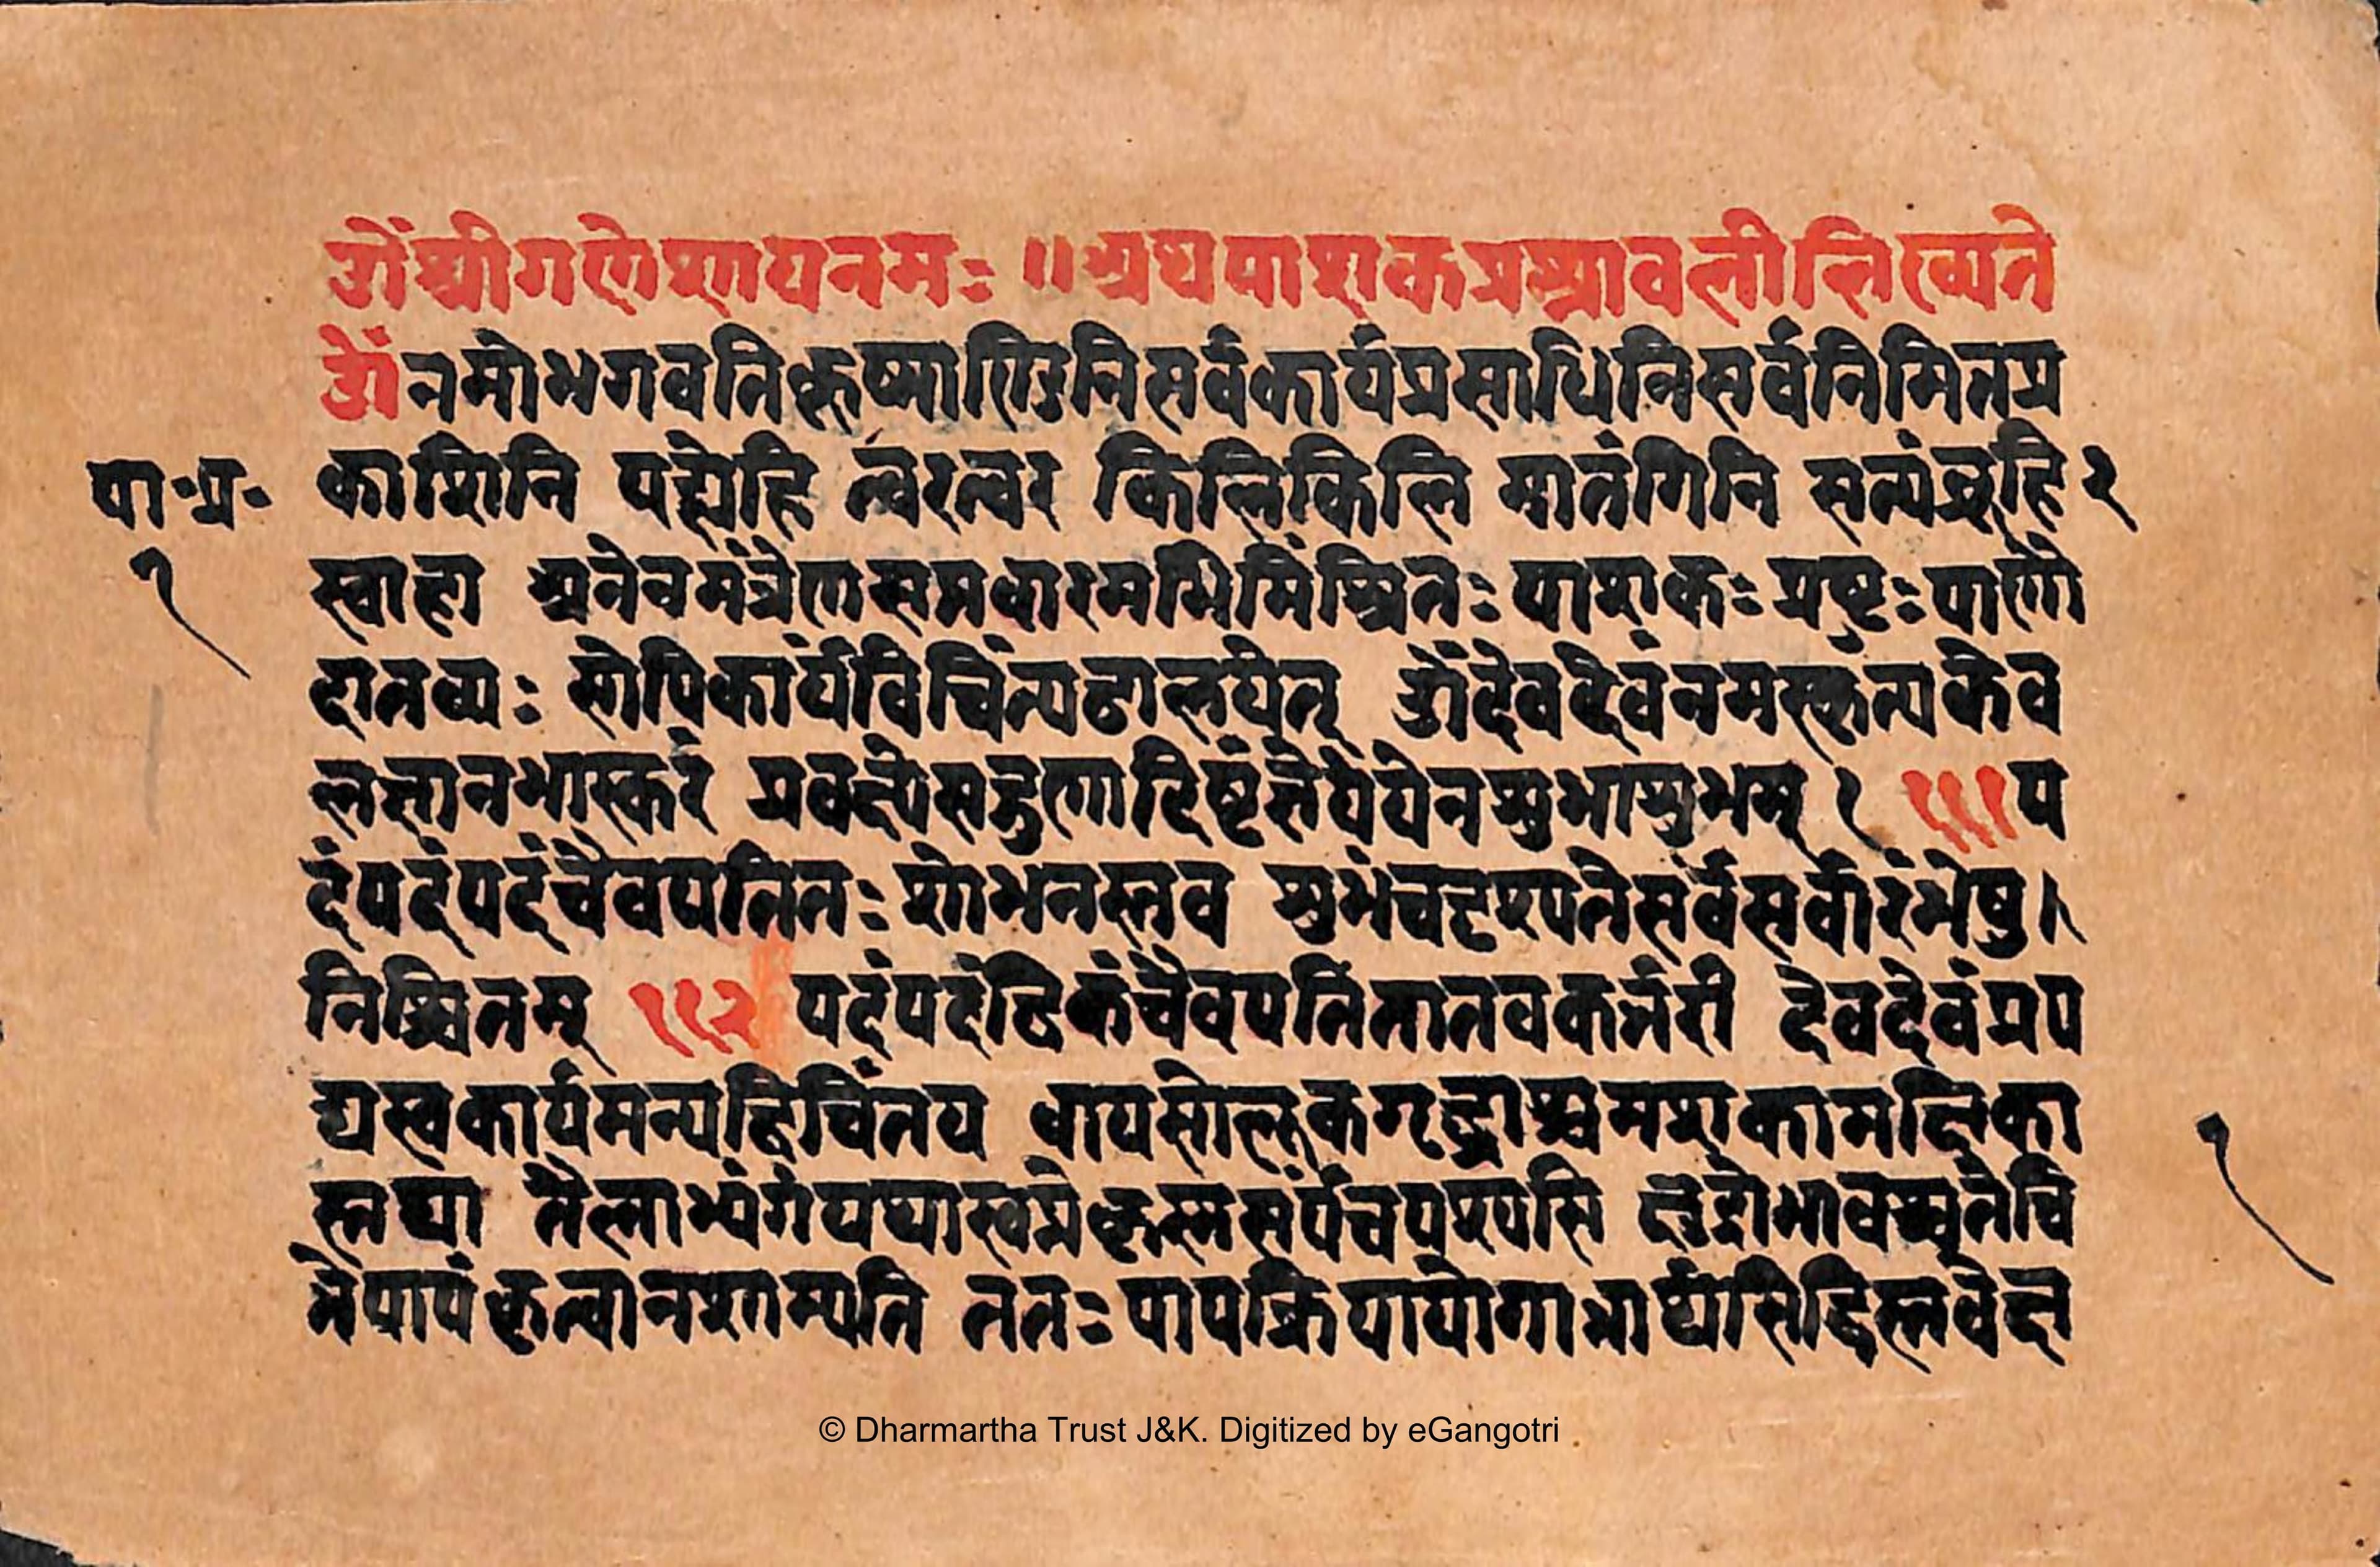 ओं श्रीगणेशायनमः ॥ अथपाशकप्रश्नावलीलिख्यते
ओं नमोभगवतिकूष्माण्डिनिसर्वकार्यप्रसाधिनिसर्वनिमित्तप्र
काशिनि एह्येहि त्वरत्वर किलिकिलि मातंगिनि सत्यंब्रूहि २
पा॰प्र॰
१
स्वाहा अनेनमंत्रेणसप्तवारमभिमंत्रितः पाशकः प्रष्टुः पाणौ
दातव्यः सोपिकार्यंविचिंत्यढालयेत् ओंदेवदेवंनमस्कृत्यकेव
लज्ञानभास्करं प्रवक्ष्येसद्गुणादिष्टंज्ञेयंयेनशुभाशुभम् १ १११ प
दंपदंपदंचैवपतितः शोभनस्तव शुभंचदृश्यतेसर्वसर्वारंभेषु
निश्चितम् ११२ पदंपदंद्विकंचैवपतितातवकर्त्तरी देवदेवंप्रप
द्यस्वकार्यमन्यद्विचिंतय वायसोलूकगृद्ध्राश्चमशकामक्षिका
स्तथा तैलाभ्यंगंयथास्वप्नेकृष्णसर्पंचपश्यसि
पापंकृत्वानशाम्यति ततः
१
© Dharmartha Trust J&K. Digitized by eGangotri